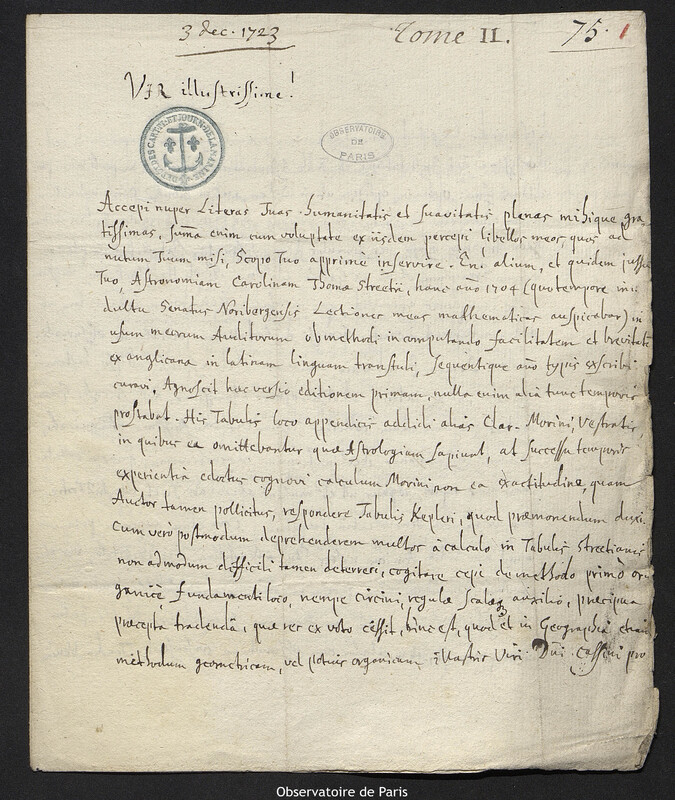 3 dec. 1723
Tome II.
75. 1
VIR illustrissime!
DEP. DES CART. PL. ET JOURN. DE LA MARINE
OBSERVATOIRE
DE
PARIS
Accepi nuper Literas Tuas humanitatis et suavitatis plenas mihique gra-
tissimas, summa enim cum voluptate ex iisdem percepi libellos meos quos ad
nutum Tuum misi, Scopo Tuo apprimè inservire. En! alium, et quidem jussu
Tuo, Astronomiam Carolinam Thomæ Streetii, hanc año 1704 (quo tempore in
dultu Senatus Noribergensis Lectiones meas mathematicas auspicabar) in
usum meorum Auditorum ob methodi in computando facilitatem et brevitatē
ex anglicana in latinam linguam transtuli, sequentique año typis exscribi
curavi. Agnoscit hæc versio editionem primam, nulla enim alia tunc temporis
prostabat. His Tabulis loco appendicis addidi alias Clar. Morini, Vestratis,
in quibus ea omittebantur quæ Astrologiam sapiunt, at successu temporis
experientiâ edoctus cognovi calculum Morini non ea exactitudine, quam
Auctor tamen pollicitus, respondere Tabulis Kepleri, quod præmonendum duxi.
Cum verò postmodum deprehenderem multos à calculo in Tabulis Streetianis
non admodum difficili tamen deterreri, cogitare cepi de methodo primò or-
ganicè fundamenti loco, nempe circini, regulæ scalæq auxiliô, præcipua
præcepta tradendâ, quæ res ex voto cessit, hinc est, quod et in Geographiâ etiam
methodum geometricam, vel potius organicam Illustris Viri Dñi Cassini pro
Observatoire de Paris